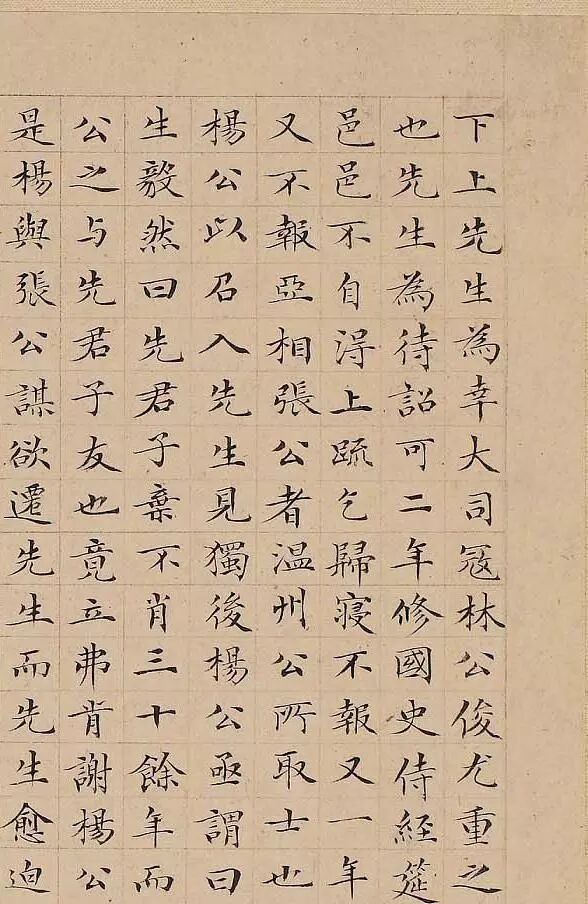 下上先生為幸大司冦林公俊尤重之
也先生為待詔可二年修國史侍經筵
邑邑不自淂上䟽乞歸寝不報又一年
又不報亞相張公者温州公所取士也
楊公以召入先生見獨後楊公亟謂曰
生毅然曰先君子棄不肖三十餘年而
公之与先君子友也竟立弗肯謝楊公
是楊與張公謀欲遷先生而先生愈迫